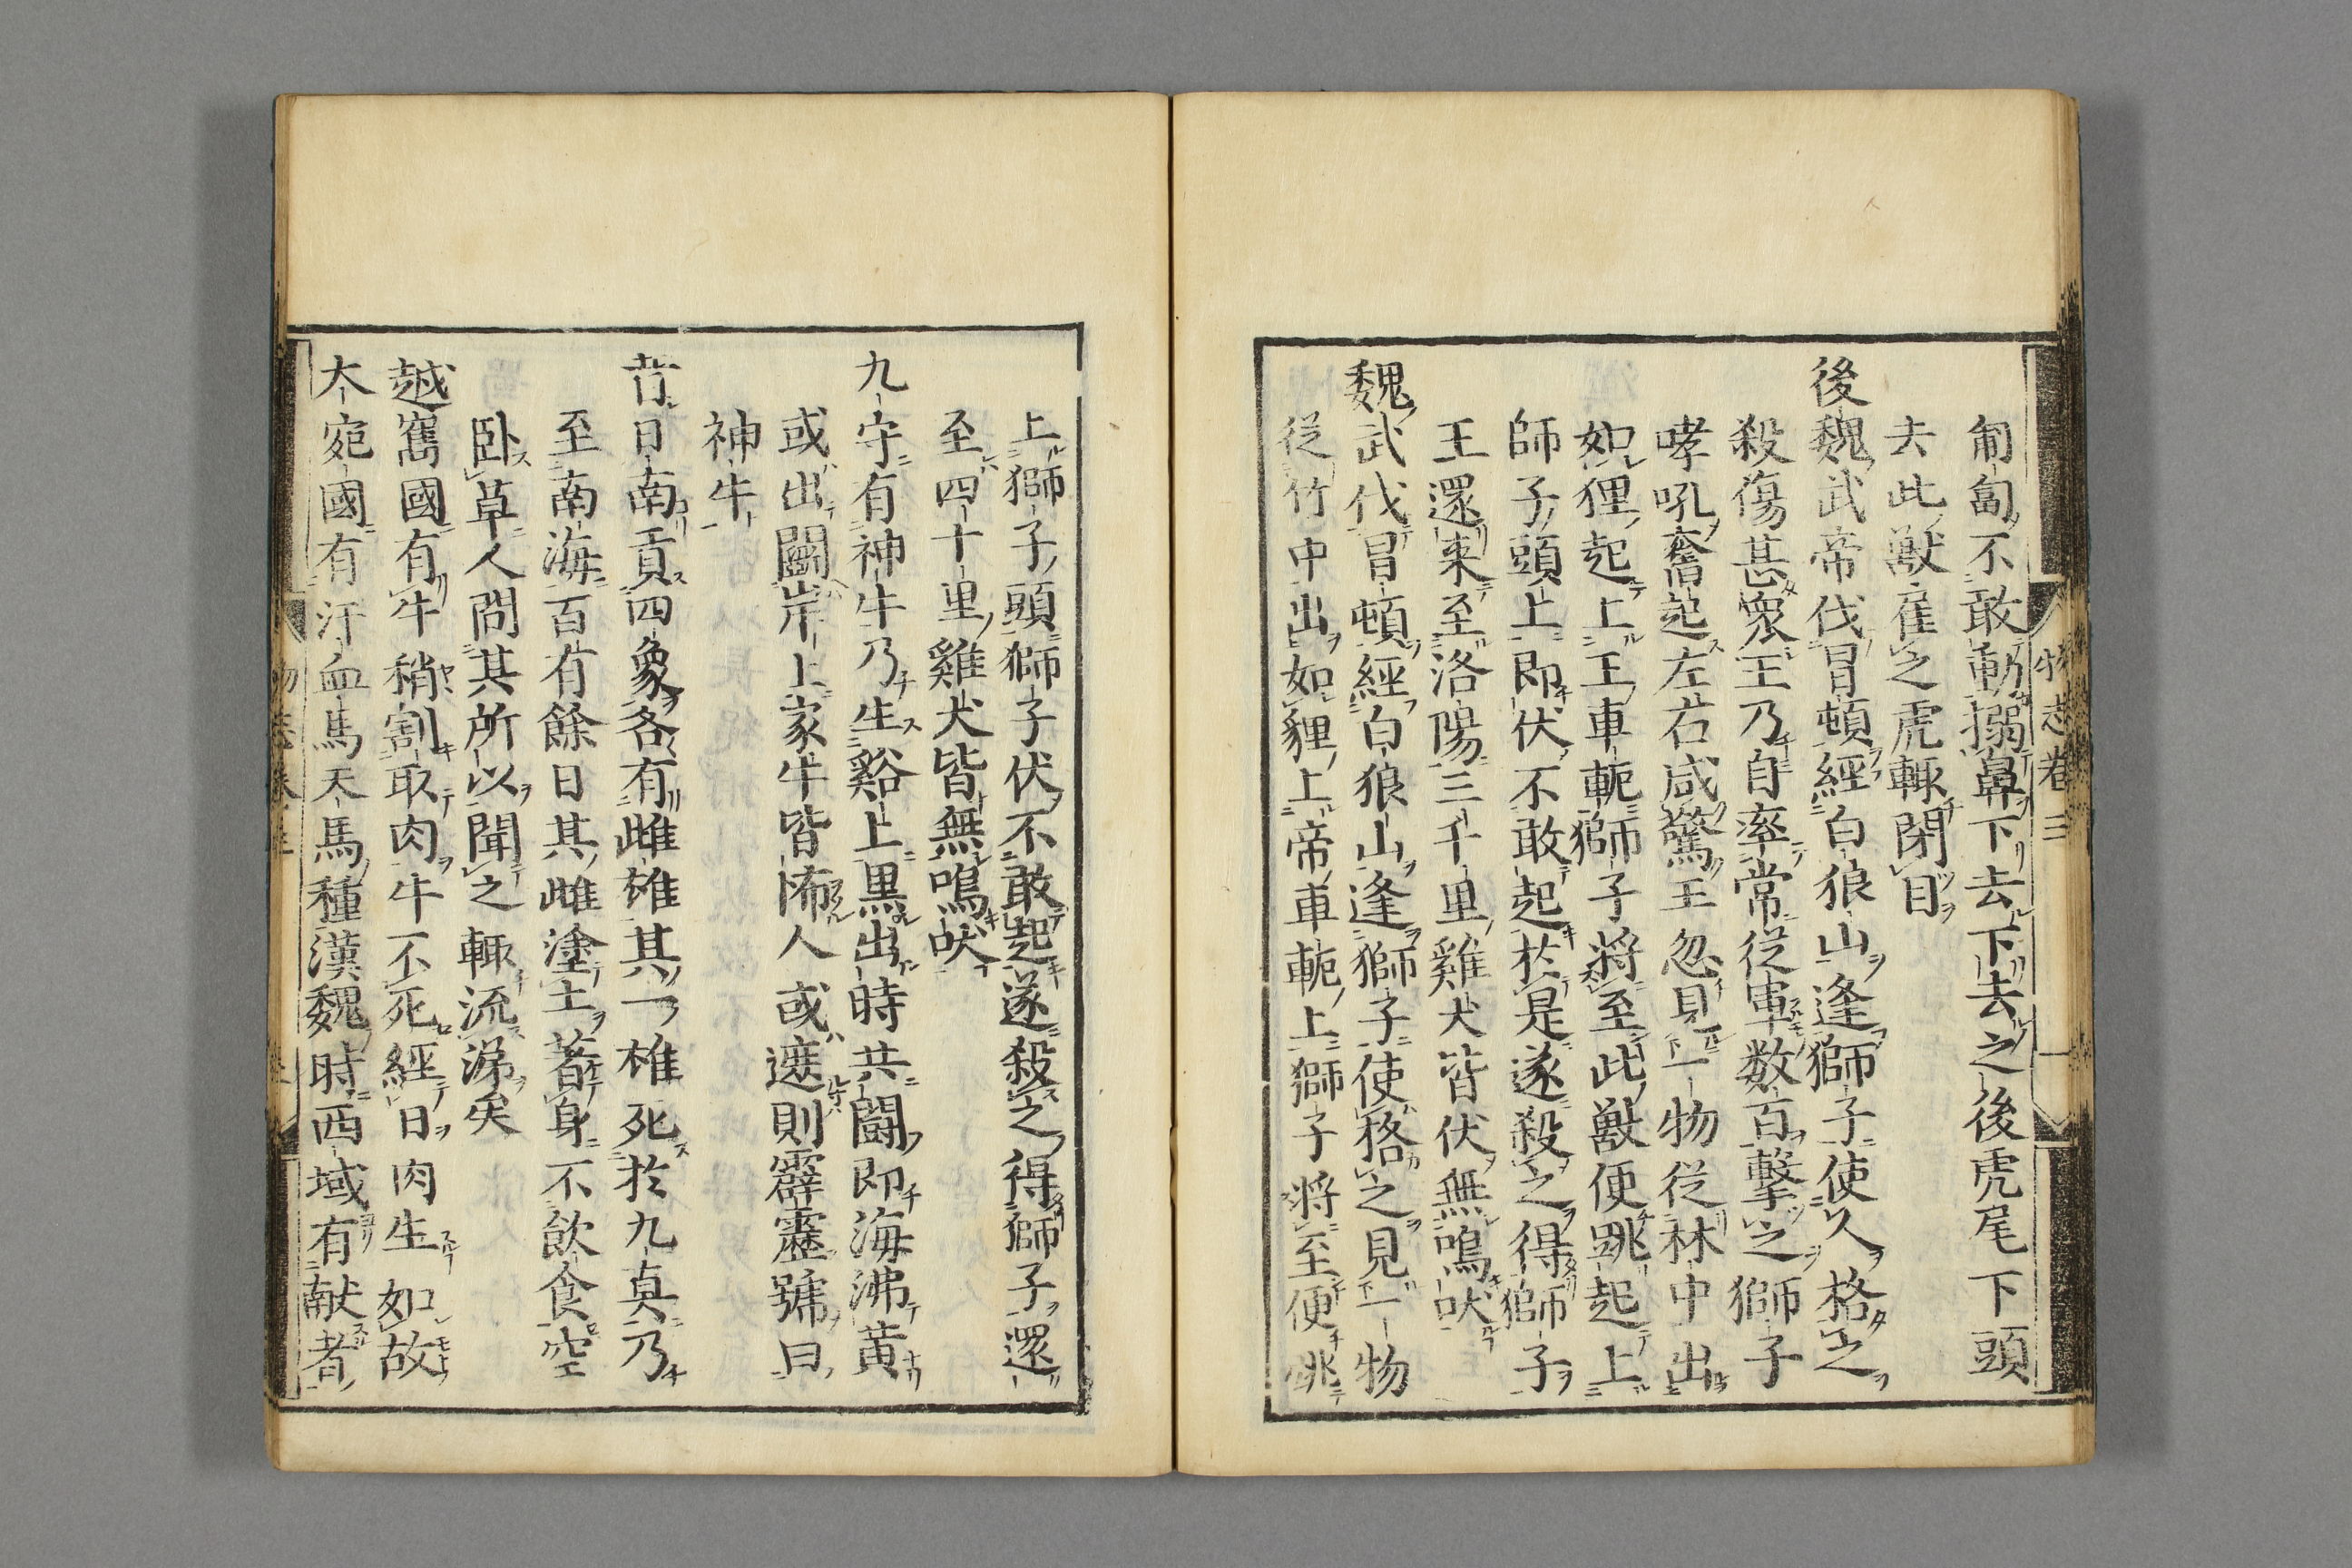 物志卷三
匍匐不敢動搦鼻下去下去之後虎尾下頭
去此獣雇之虎輙閉目
後魏武帝伐冒頓經白狼山逢獅子使人格之
殺傷甚衆王乃自率常從軍数百擊之獅子
哮吼奮起左右咸驚王忽見一物從林中出
如狸起上王車軛獅子將至此獣便跳起上
師子頭上即伏不敢起於是遂殺之得獅子
王還来至洛陽三千里雞犬皆伏無鳴吠
魏武伐冒頓經白狼山逢獅子使格之見一物
從竹中出如貍上帝車軛上獅子將至便跳
上獅子頭獅子伏不敢起遂殺之得獅子還
至四十里雞犬皆無鳴吠
九守有神牛乃生谿上黒出時共闘即海沸黄
或出鬭岸上家牛皆怖人或遮則霹靂號曰
神牛
昔日南貢四象各有雌雄其一雄死於九真乃
至南海百有餘日其雌塗土著身不飲食空
卧草人問其所以聞之輙流涕矣
越嶲國有牛稍割取肉牛不死經日肉生如故
大宛國有汗血馬天馬種漢魏時西域有献者